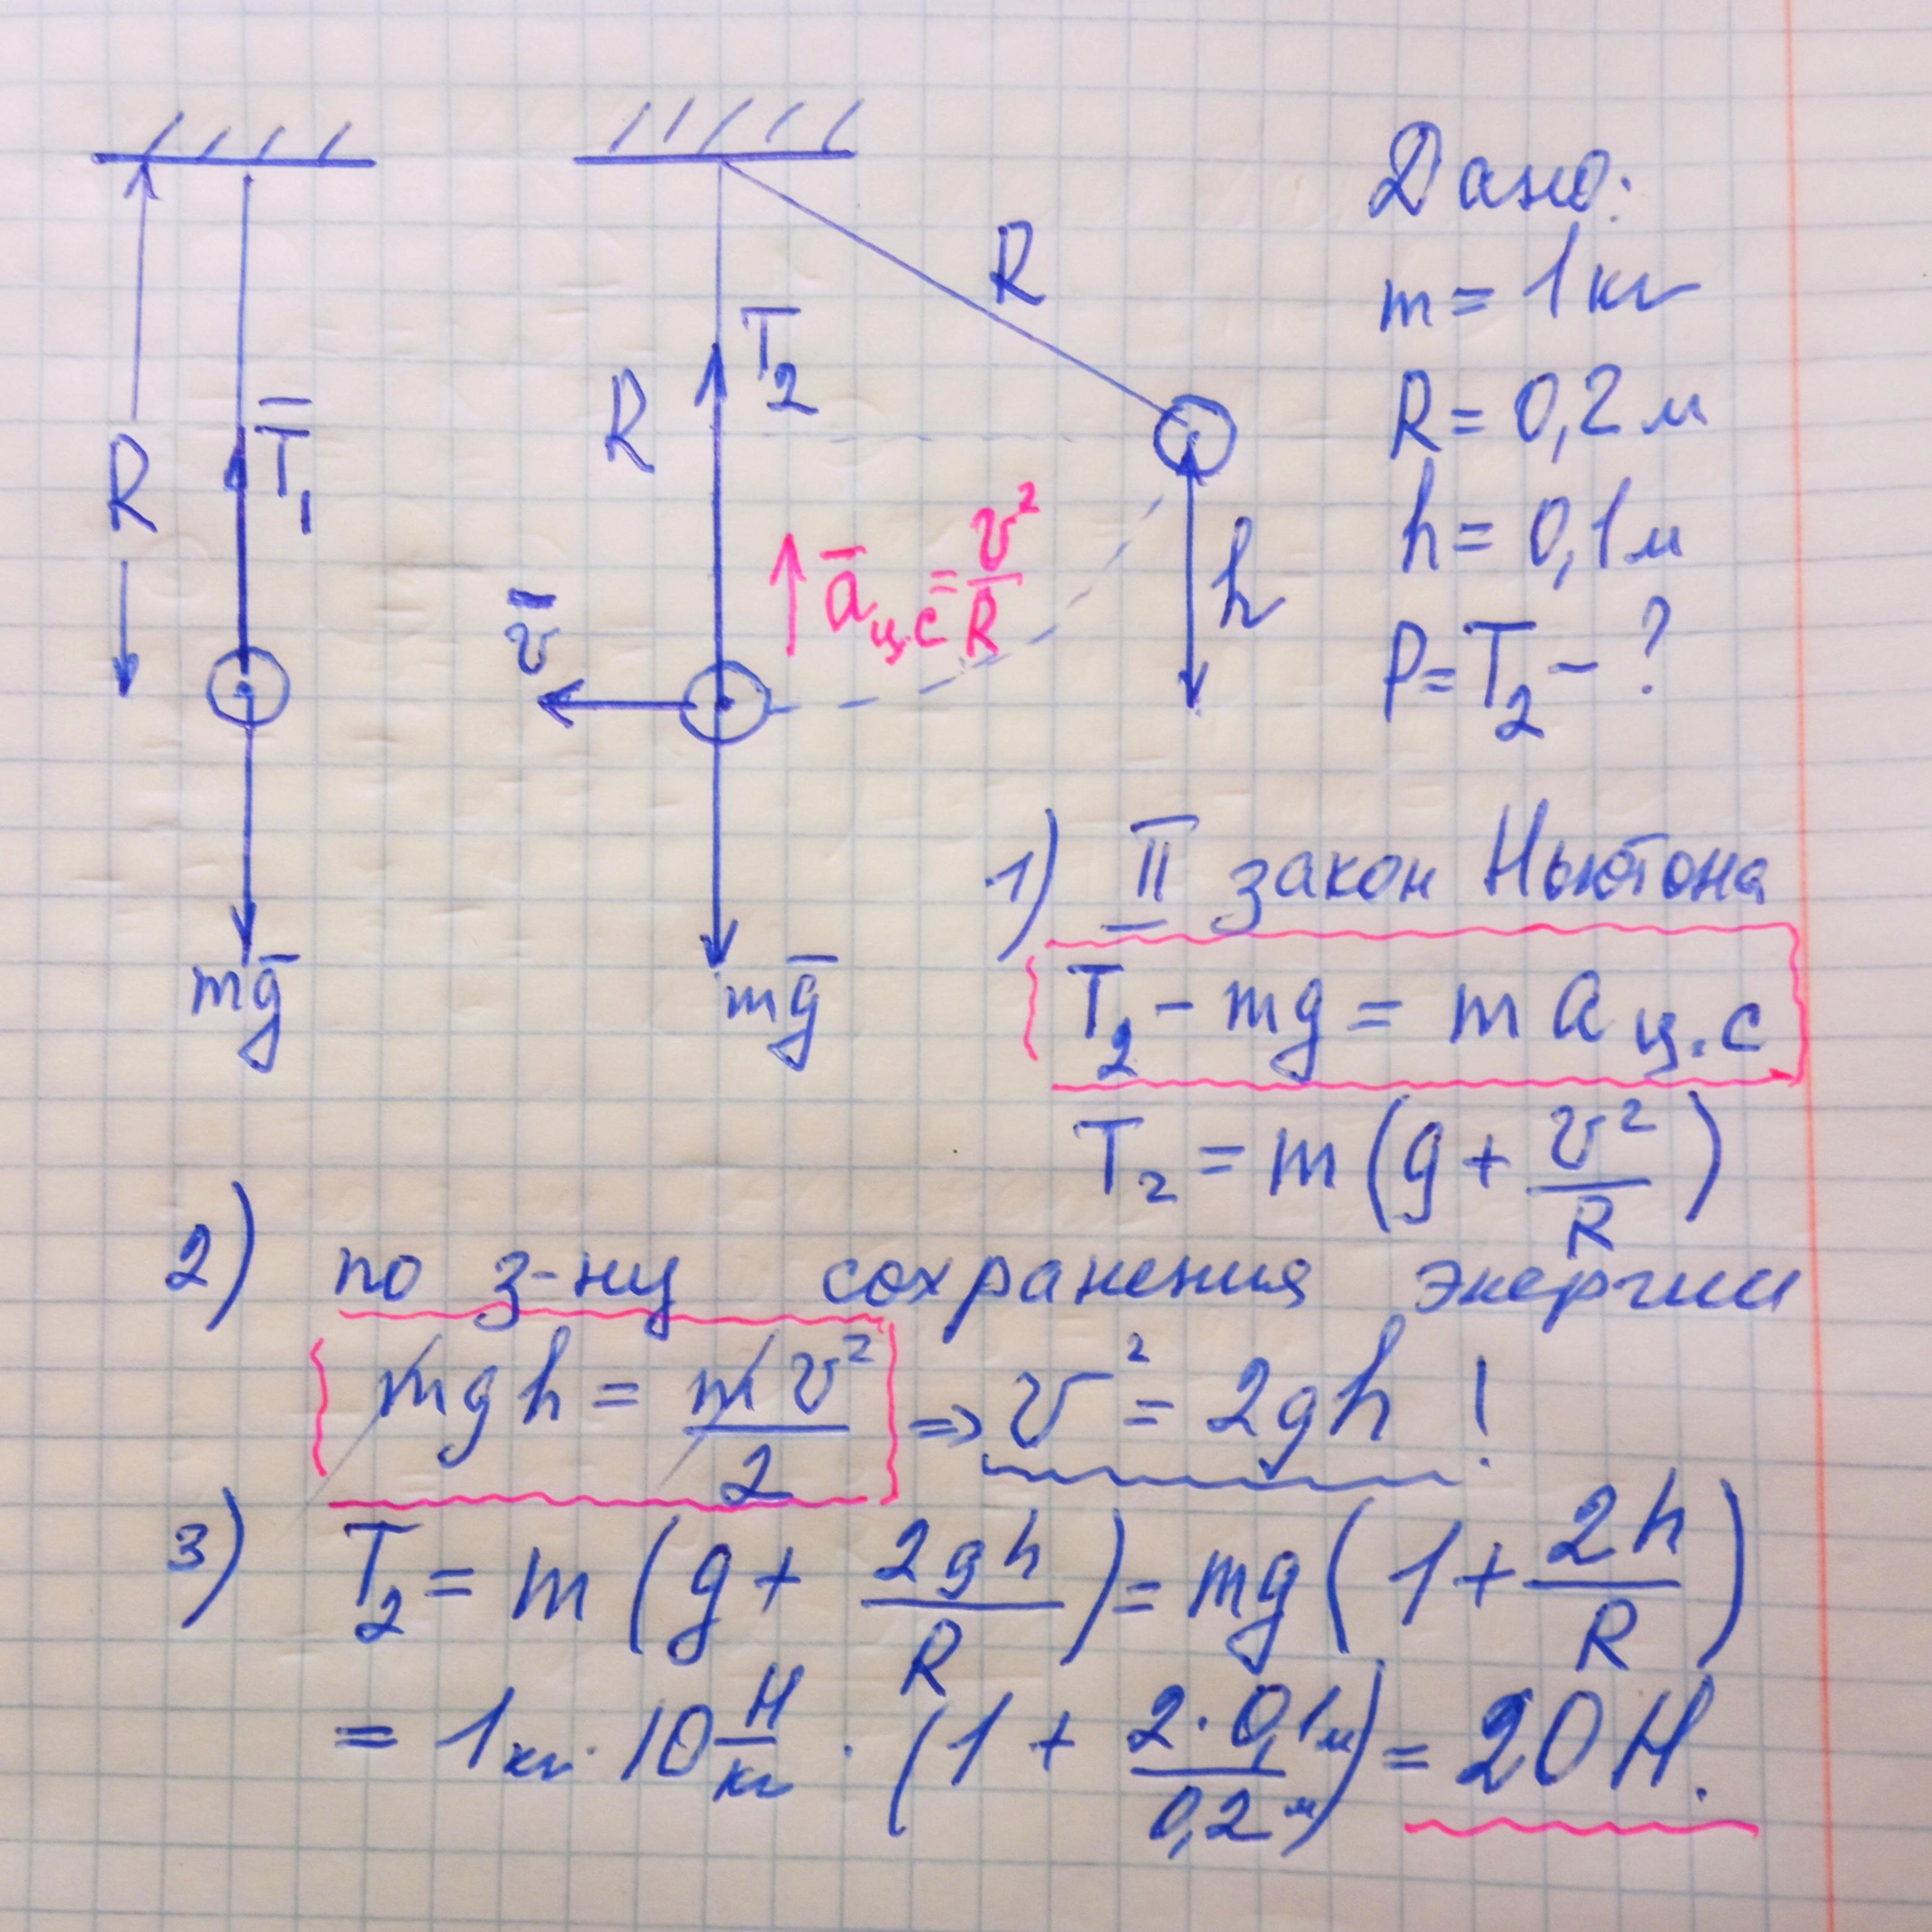 R
T̅₁
mg̅
R
T̅₂
R
v̅
a̅ц.с = v²/R
h
mg̅
Дано:
m = 1 кг
R = 0,2 м
h = 0,1 м
P = T₂ - ?
1) II закон Ньютона
T₂ - mg = m a ц.с
T₂ = m (g + v²/R)
2) по з-ну сохранения энергии
mgh = mv²/2 => v² = 2gh !
3) T₂ = m (g + 2gh/R) = mg (1 + 2h/R)
= 1 кг · 10 Н/кг · (1 + 2 · 0,1 м/0,2 м) = 20 Н.